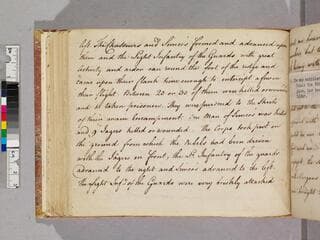 The Chasseurs and Simcoe's formed and advanced upon
them and the Light Infantry of the Guards with great
activity and ardor ran round the foot of the ridge and
came upon their flank time enough to intercept a few in
their flight. Between 20 or 30 of them were killed wounded
and taken prisoners. They were pursued to the Skirts
of their main Encampment. One Man of Simcoe's was killed
and 9 Jagers killed or wounded. The Corps took post on
the ground from which the Rebels had been driven
with the Jagers in front, the Lt. Infantry of the guards
advanced to the right and Simcoe's advanced to the left.
The Light Inf.y of the Guards were very briskly attacked